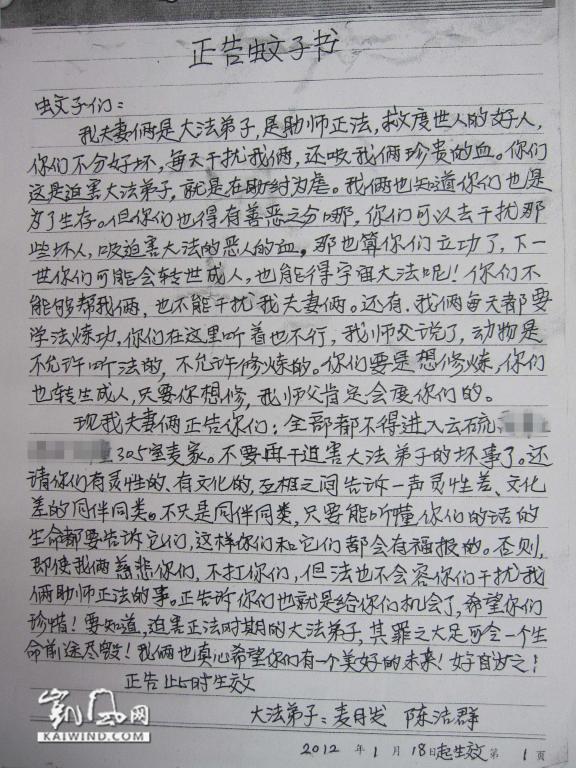 正告蚊子书
蚊子们：
我夫妻俩是大法弟子，是助师正法，救度世人的好人，
你们不分好坏，每天干扰我俩，还吸我俩珍贵的血。你们
这是迫害大法弟子，就是在助纣为虐。我俩也知道你们也是
为了生存。但你们也得有善恶之分哪，你们可以去干扰那
些坏人，吸迫害大法的恶人的血。那也算你们立功了，下一
世你们可能会转世成人，也能得宇宙大法呢！你们不
能够帮我俩，也不能干扰我夫妻俩。还有，我俩每天都要
学法炼功，你们在这里听着也不行，我师父说了，动物是
不允许听法的，不允许修炼的。你们要是想修炼，你们
也转生成人，只要你想修，我师父肯定会度你们的。
现我夫妻俩正告你们：全部都不得进入云硫
305室麦家。不要再干迫害大法弟子的坏事了。还
请你们有灵性的、有文化的，互相之间告诉一声灵性差、文化
差的同伴同类。不只是同伴同类，只要能听懂你们的话的
生命都要告诉它们，这样你们和它们都会有福报的。否则，
即使我俩慈悲你们，不打你们，但法也不会容你们干扰我
俩助师正法的事。正告诉你们也就是给你们机会了，希望你们
珍惜！要知道，迫害正法时期的大法弟子，其罪之大足可令一个生
命前途尽毁！我俩也真心希望你们有一个美好的未来！好自为之！
正告即时生效
大法弟子：麦月发 陈洁群
2012 年 1 月 18日起生效 第 1 页
凯风网
KAIWIND.COM